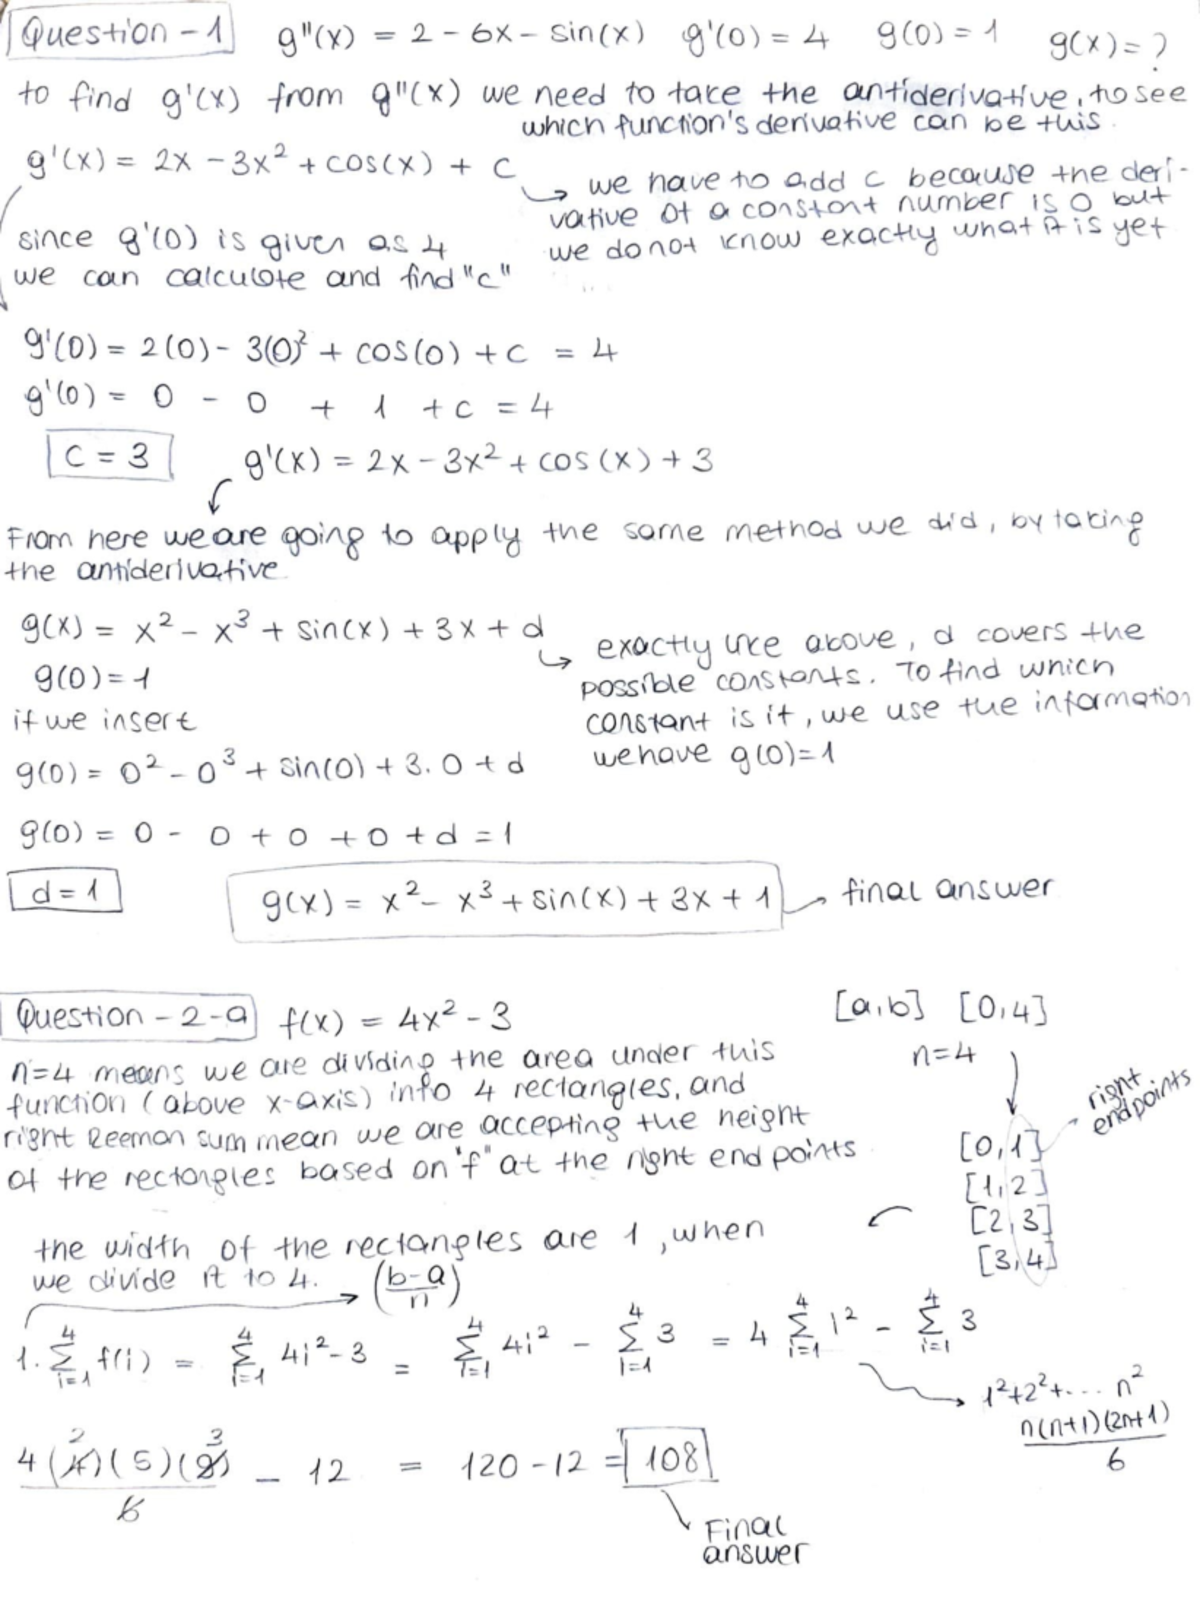 Question - 1 g''(x) = 2 - 6x - sin(x) g'(0) = 4 g(0) = 1 g(x) = ?
to find g'(x) from g''(x) we need to take the antiderivative, to see
which function's derivative can be this.
g'(x) = 2x - 3x² + cos(x) + c
→ we have to add c because the deri-
vative of a constant number is 0 but
we do not know exactly what it is yet
since g'(0) is given as 4
we can calculate and find "c"
g'(0) = 2(0) - 3(0)² + cos(0) + c = 4
g'(0) = 0 - 0 + 1 + c = 4
c = 3 g'(x) = 2x - 3x² + cos(x) + 3
From here we are going to apply the same method we did, by taking
the antiderivative
g(x) = x² - x³ + sin(x) + 3x + d
→ exactly like above, d covers the
possible constants. To find which
constant is it, we use the information
we have g(0)=1
g(0) = 1
if we insert
g(0) = 0² - 0³ + sin(0) + 3.0 + d
g(0) = 0 - 0 + 0 + 0 + d = 1
d = 1 g(x) = x² - x³ + sin(x) + 3x + 1 → final answer
Question - 2 - a f(x) = 4x² - 3 [a,b] [0,4]
n=4 means we are dividing the area under this
function (above x-axis) into 4 rectangles, and
right Reemon sum mean we are accepting the height
of the rectangles based on "f" at the right end points
n=4
right
endpoints
[0,1]
[1,2]
[2,3]
[3,4]
the width of the rectangles are 1, when
we divide it to 4. → (b-a/n)
1. 4∑i=1 f(i) = 4∑i=1 4i²-3 = 4∑i=1 4i² - 4∑i=1 3 = 4 4∑i=1 i² - 4∑i=1 3
→ 1²+2²+.... n²
n(n+1)(2n+1)
6
2 3
4(4)(5)(9) - 12 = 120 - 12 = 108
6
Final
answer